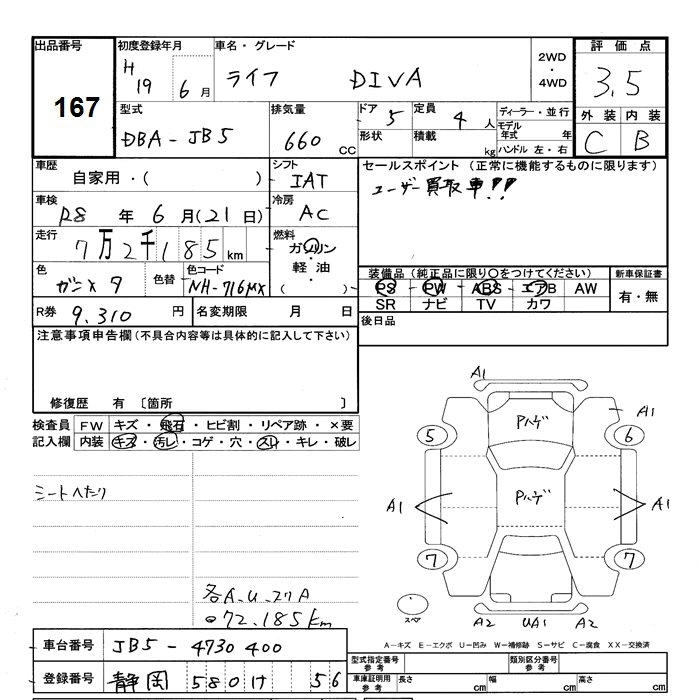 出品番号
167
初度登録年月
H19 6月
車名・グレード
ライフ DIVA
2WD
・
4WD
評価点
3.5
外装 内装
C B
型式
DBA-JB5
排気量
660 cc
ドア 5
形状
定員 4 人
積載 kg
ディーラー・並行
モデル年式 年
ハンドル 左・右
車歴
自家用・( )
シフト
IAT
セールスポイント (正常に機能するものに限ります)
ユーザー買取車!!
車検
R8 年 6 月(21日)
冷房
AC
走行
7万2千185km
燃料
ガソリン
・
軽油
( )
色
ガンメタ
色替
色コード
NH-716MX
装備品 (純正品に限り〇をつけてください)
PS PW ABS エアB AW
SR ナビ TV カワ
新車保証書
有・無
R券 9.310 円
名変期限 月 日
後日品
注意事項申告欄(不具合内容等は具体的に記入して下さい)
修復歴 有 〔箇所 〕
検査員記入欄
FW キズ・飛石・ヒビ割・リペア跡・×要
内装 キズ・汚レ・コゲ・穴・スレ・キレ・破レ
シートヘたり
各A.U.スリA
72.185km
A1
Pハゲ
A1
5
6
A1
Pハゲ
A1
7
7
スペア
A2 UA1 A2
A-キズ E-エクボ U-凹み W-補修跡 S-サビ C-腐食 XX-交換済
車台番号
JB5-4730400
登録番号
静岡 580 け 56
型式指定番号
参考
類別区分番号
参考
車庫証明用
参考
長さ cm 幅 cm 高さ cm